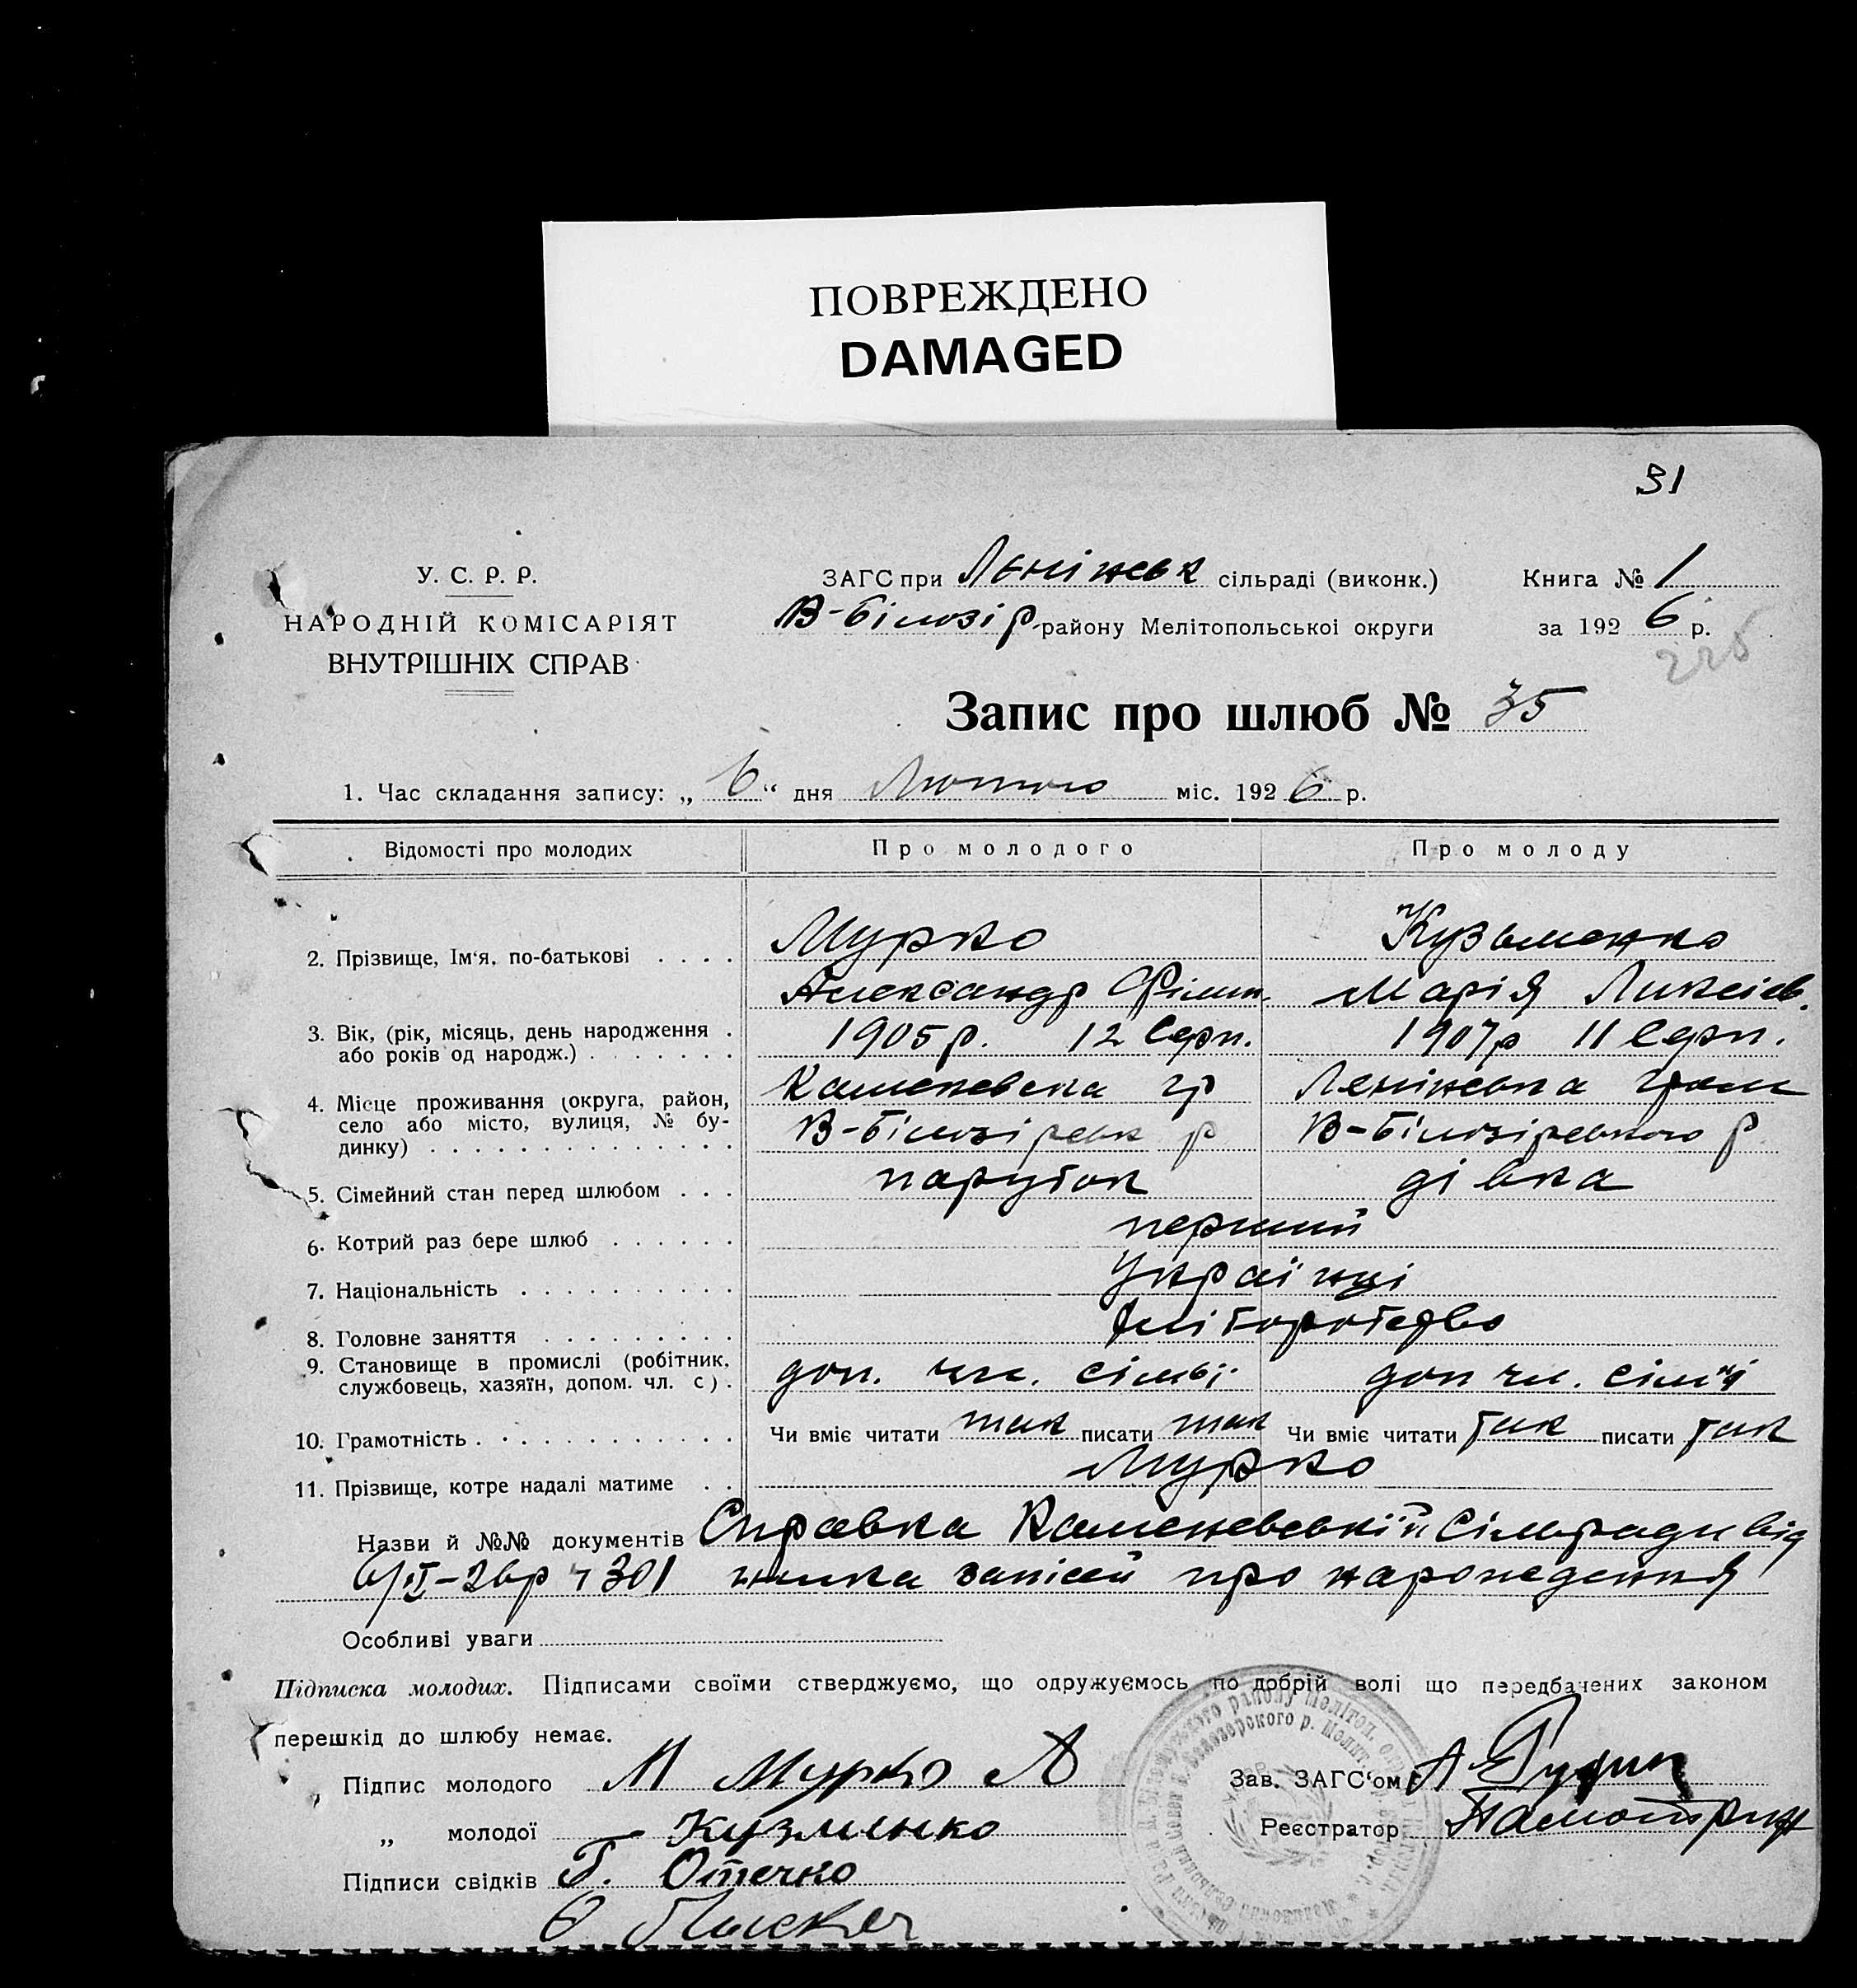 ПОВРЕЖДЕНО
DAMAGED
31
У. С. Р. Р.
НАРОДНІЙ КОМІСАРІЯТ
ВНУТРІШНІХ СПРАВ
ЗАГС при Ленінськ сільраді (виконк.)
В-Білозір району Мелітопольської округи
Книга № 1
за 192 6 р.
226
Запис про шлюб № 35
1. Час складання запису: „ 6 “ дня Лютого міс. 192 6 р.
Відомості про молодих Про молодого Про молоду
2. Прізвище, Ім‘я, по-батькові . . . . Мурко Кузьменко
Александр Філип. Марія Ликсієв.
3. Вік, (рік, місяць, день народження . 1905 р. 12 Серп. 1907 р 11 Серп.
або років од народж.) . . . . . . .
4. Місце проживання (округа, район, Каменевська гр Ленінська гром
село або місто, вулиця, № бу- В-Білозіревск р В-Білозіревского р
динку) . . . . . . . . . . . . . .
5. Сімейний стан перед шлюбом . . . паруток дівка
6. Котрий раз бере шлюб . . . . . . перший
7. Національність . . . . . . . . . . Українці
8. Головне заняття . . . . . . . . . хліборобство
9. Становище в промислі (робітник, доп. чл. сімьї доп чл. сім'ї
службовець, хазяїн, допом. чл. с) .
10. Грамотність . . . . . . . . . . . Чи вміє читати так писати так Чи вміє читати так писати так
11. Прізвище, котре надалі матиме . . Мурко
Назви й №№ документів Справка Каменевській Сільради від
6/ІІ-26р ч 301 запісей про народження
Особливі уваги
Підписка молодих. Підписами своїми стверджуємо, що одружуємось по добрій волі що передбачених законом
перешкід до шлюбу немає.
Підпис молодого М Мурко А
Зав. ЗАГС‘ом А
„ молодої Кузменко
Реєстратор
Підписи свідків Г. Отечко